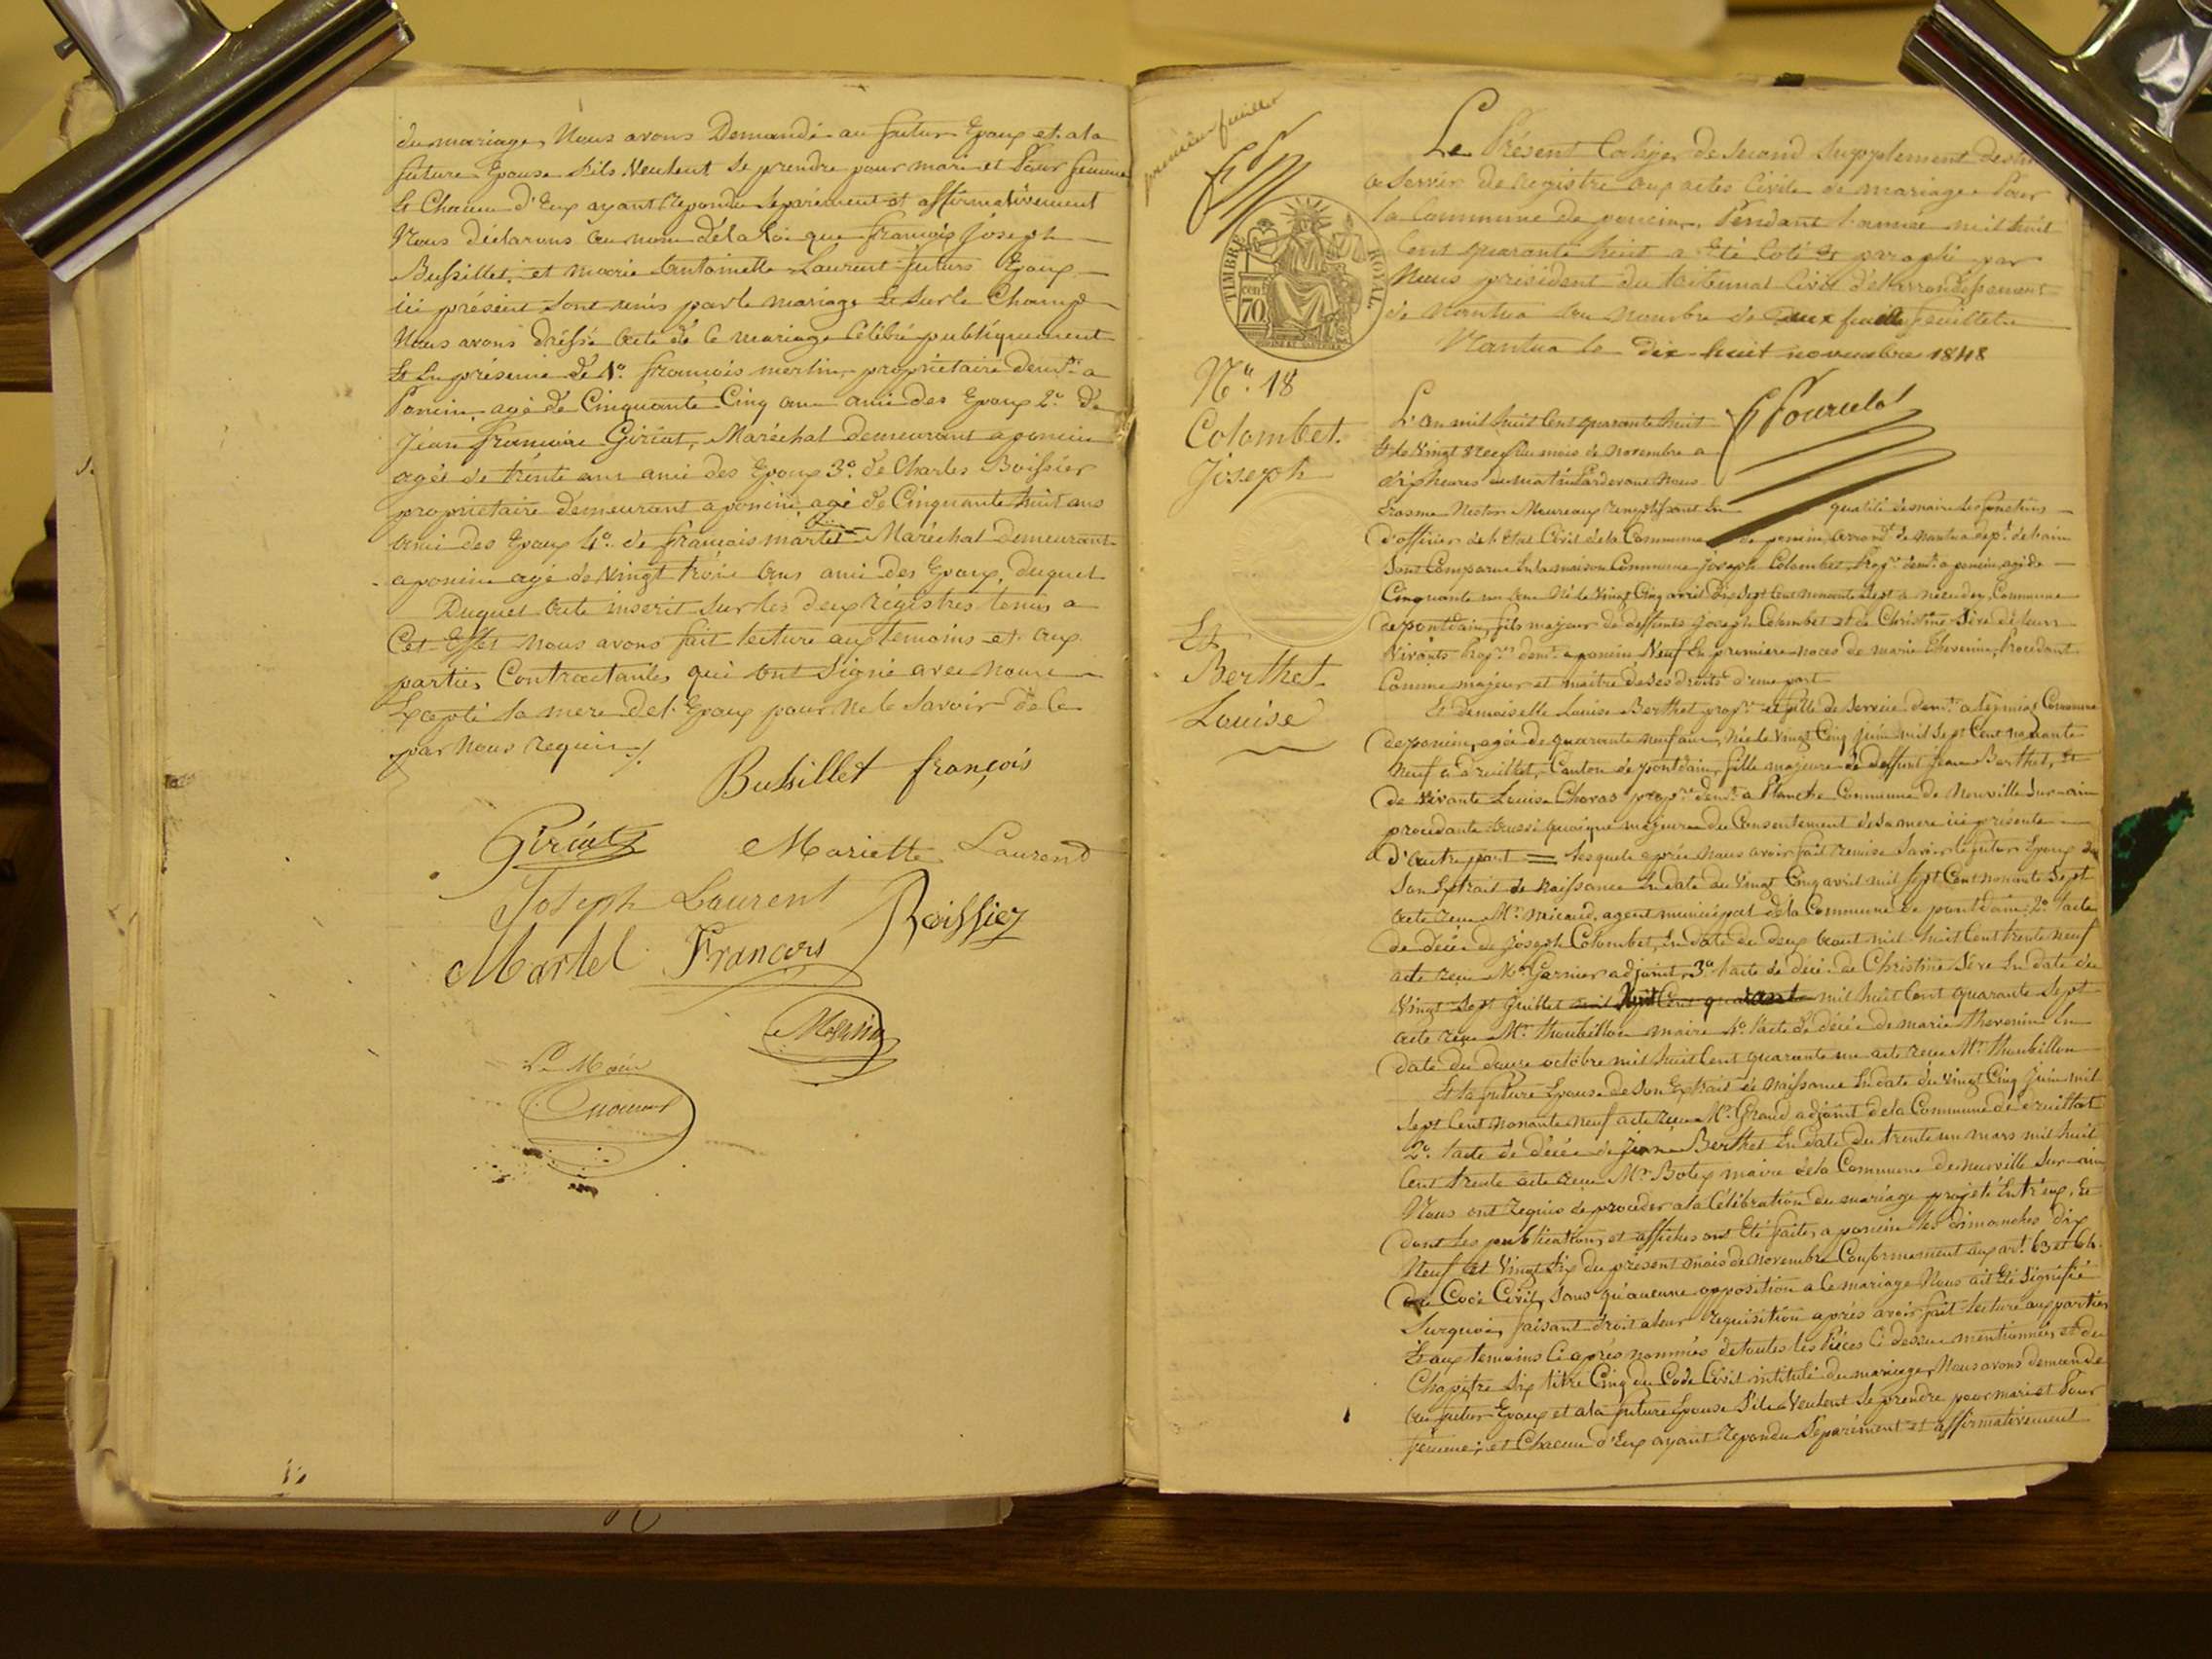 du mariage, Nous avons Demandé au futur Epoux et a la
future Epouse S'ils Veulent Se prendre pour mari et Pour femme
Et Chacun d'Eux ayant Repondu Séparément et affirmativement
Nous déclarons au nom dela Loi que françois Joseph
Bussillet, et marie Antoinette Laurent futurs Epoux
ici présent Sont unis par le mariage Et Sur le Champ
Nous avons dréssé Acte de ce mariage Célébré publiquement
Et En présence de 1o. françois merlin, propriétaire demt. a
Poncin agé de Cinquante Cinq ans ami des Epoux 2o. de
Jean françois Giriat, Maréchal demeurant a poncin
agé de trente ans ami des Epoux 3o. de Charles Boissier
propriétaire demeurant a poncin agé de Cinquante huit ans
ami des Epoux 4o. de françois martel Maréchal demeurant
a poncin agé de Vingt trois ans ami des Epoux, duquel
Duquel acte inscrit Sur les deux régistres tenus a
Cet Effet Nous avons fait lecture aux temoins et aux
parties Contractantes qui ont Signé avec nous
Excepté la mere de l'Epoux pour ne le Savoir de ce
par Nous requis ./.
Bussillet françois
Giriat Mariette Laurent
Joseph Laurent Boissier
Martel François
Merlin
Le Maire
premier feuillet
Le Présent Cahier de Second Supplement destiné
a Servir de Registre aux actes Civils de mariage Pour
la Commune de poncin, Pendant l'année mil huit
Cent quarante huit a Eté Coté Et paraphé par
Nous président du tribunal Civil de l'arrondissement
de Nantua au nombre de deux feuillets
Nantua le dix huit novembre 1848
TIMBRE ROYAL
cen 70
No. 18
Colombet
Joseph
Et
Berthet
Louise
L'an mil huit Cent quarante huit
Et le Vingt neuf du mois de novembre a
dix heures du matin Pardevant Nous
Erasme Nestor Meureaux remplissant En qualité de maire les fonctions
d'officier de l'Etat Civil dela Commune de poncin, arrondt. de nantua dept. de l'ain
Sont Comparus En la maison Commune Joseph Colombet, Propre. demt. a poncin, agé de
Cinquante un ans Né le Vingt Cinq avril dix Sept Cent nonante Sept a Commune
de pontdain, fils majeur de deffunts Joseph Colombet et de Christine Sève de leurs
Vivants Propres. demt. a poncin Veuf En premiere noces de marie thevenin, Procédant
Comme majeur et maitre de Ses droits d'une part
Et demoiselle Louise Berthet propre. et fille de Service demt. a Commune
de poncin, agée de quarante neuf ans, née le Vingt Cinq juin mil Sept Cent nonante
neuf a druillat, Canton de pontdain, fille majeure de deffunt Jean Berthet, et
de vivante Louise Charas propre. demt. a Planche Commune de Neuville Sur-ain
procédante aussi quoique majeure du Consentement de Sa mere ici présente
d'autre part = lesquels après Nous avoir fait remise Savoir le futur Epoux de
Son Extrait de Naissance En date du Vingt Cinq avril mil Sept Cent nonante Sept
acte reçu Mr. micaud, agent municipal dela Commune de pontdain, 2o. l'acte
de décès de Joseph Colombet, En date du deux aout mil huit Cent trente neuf
acte reçu Mr. Garnier adjoint, 3o. l'acte de décès de Christine Sève En date du
Vingt Sept Juillet mil huit Cent quarante mil huit Cent quarante Sept
acte reçu Mr. thoubillon maire 4o. l'acte de décès de marie thevenin En
date du douze octobre mil huit Cent quarante un acte reçu Mr. thoubillon
Et la future Epouse de Son Extrait de Naissance En date du Vingt Cinq juin mil
Sept Cent Nonante neuf acte reçu Mr. Graud adjoint dela Commune de druillat
2o. l'acte de décès de Jean Berthet En date du trente un mars mil huit
Cent trente acte reçu Mr. Botex maire dela Commune de neuville Sur-ain
Nous ont requis de procéder a la Célébration du mariage projeté Entr'eux, Et
dont les publications et affiches ont Eté faites a poncin les dimanches dix
Neuf et Vingt Six du présent mois de novembre Conformement aux art. 63 et 64
du Code Civil, Sans qu'aucune opposition a ce mariage Nous ait Eté Signifié
Surquoi, faisant droit a leur requisition après avoir fait lecture aux parties
Et aux temoins Ci après nommés de toutes les Pièces Ci dessus mentionnées et du
Chapitre Six titre Cinq du Code Civil intitulé du mariage, Nous avons demandé
au futur Epoux et a la future Epouse S'ils Veulent Se prendre pour mari et Pour
femme; et Chacun d'Eux ayant répondu Séparément et affirmativement